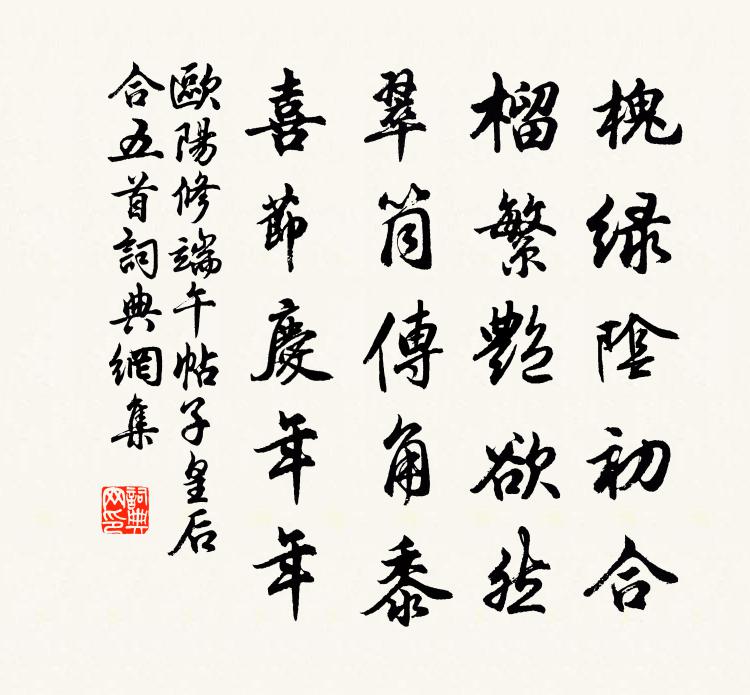 槐緑陰初合
榴繁艷欲然
翠筒傳角黍
喜節慶年年
歐陽修端午帖子皇后
合五首詞典網集
詞典
网印